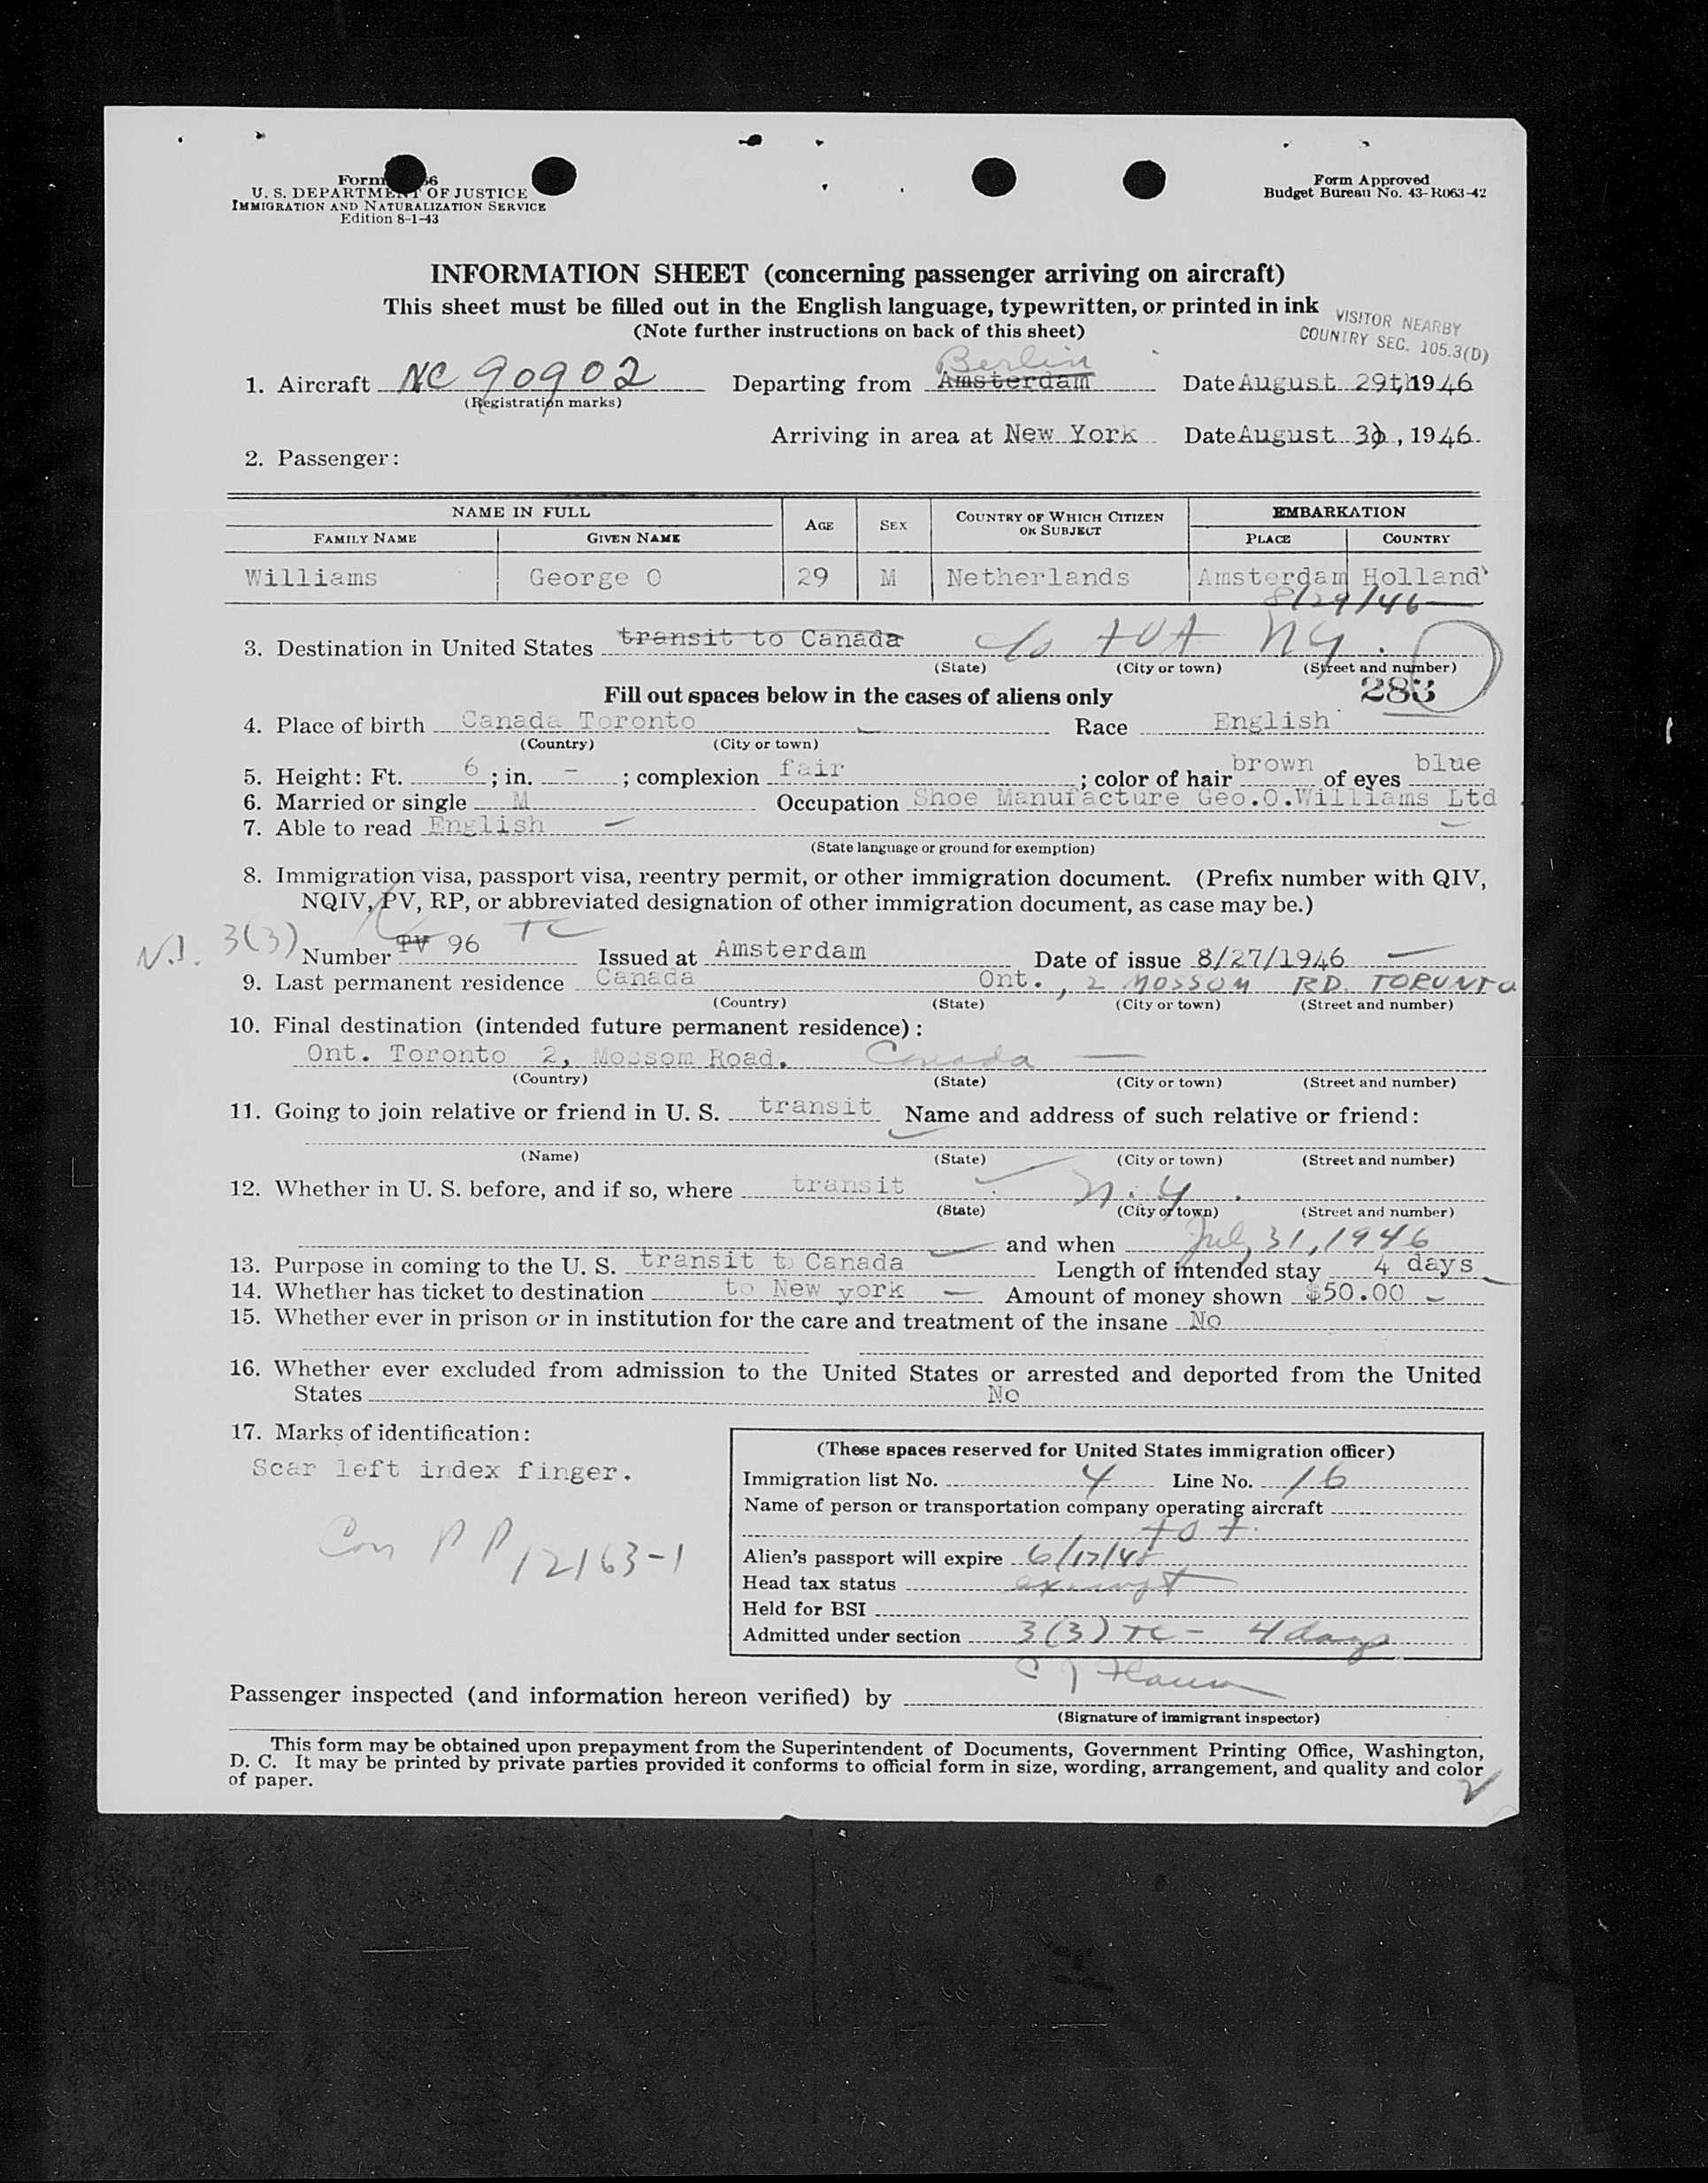 Form 6
U. S. DEPARTMENT OF JUSTICE
IMMIGRATION AND NATURALIZATION SERVICE
Edition 8-1-43
Form Approved
Budget Bureau No. 43-R063-42
INFORMATION SHEET (concerning passenger arriving on aircraft)
This sheet must be filled out in the English language, typewritten, or printed in ink
(Note further instructions on back of this sheet)
VISITOR NEARBY
COUNTRY SEC. 105.3(D)
Berlin
1. Aircraft NC 90902 Departing from Amsterdam Date August 29th 1946
(Registration marks)
Arriving in area at New York Date August 30, 1946.
2. Passenger:
NAME IN FULL AGE SEX COUNTRY OF WHICH CITIZEN OR SUBJECT EMBARKATION
FAMILY NAME GIVEN NAME PLACE COUNTRY
Williams George O 29 M Netherlands Amsterdam Holland
8/29/46
3. Destination in United States transit to Canada c/o NY.
(State) (City or town) (Street and number)
Fill out spaces below in the cases of aliens only 283
4. Place of birth Canada Toronto Race English
(Country) (City or town)
5. Height: Ft. 6; in. -; complexion fair; color of hair brown of eyes blue
6. Married or single M Occupation Shoe Manufacture Geo.O.Williams Ltd
7. Able to read English
(State language or ground for exemption)
8. Immigration visa, passport visa, reentry permit, or other immigration document. (Prefix number with QIV,
NQIV, PV, RP, or abbreviated designation of other immigration document, as case may be.)
N.I. 3(3) Number PV 96 TC Issued at Amsterdam Date of issue 8/27/1946
9. Last permanent residence Canada Ont., 2 MOSSOM RD. TORONTO
(Country) (State) (City or town) (Street and number)
10. Final destination (intended future permanent residence):
Ont. Toronto 2, Mossom Road. Canada
(Country) (State) (City or town) (Street and number)
11. Going to join relative or friend in U. S. transit Name and address of such relative or friend:
(Name) (State) (City or town) (Street and number)
12. Whether in U. S. before, and if so, where transit N.Y.
(State) (City or town) (Street and number)
and when July 31, 1946
13. Purpose in coming to the U. S. transit to Canada Length of intended stay 4 days
14. Whether has ticket to destination to New york Amount of money shown $50.00
15. Whether ever in prison or in institution for the care and treatment of the insane No
16. Whether ever excluded from admission to the United States or arrested and deported from the United
States No
17. Marks of identification:
Scar left index finger.
Can PP 12163-1
(These spaces reserved for United States immigration officer)
Immigration list No. 4 Line No. 16
Name of person or transportation company operating aircraft
Alien's passport will expire 6/17/48
Head tax status exempt
Held for BSI
Admitted under section 3(3) TC - 4 days
Passenger inspected (and information hereon verified) by
(Signature of immigrant inspector)
This form may be obtained upon prepayment from the Superintendent of Documents, Government Printing Office, Washington,
D. C. It may be printed by private parties provided it conforms to official form in size, wording, arrangement, and quality and color
of paper.